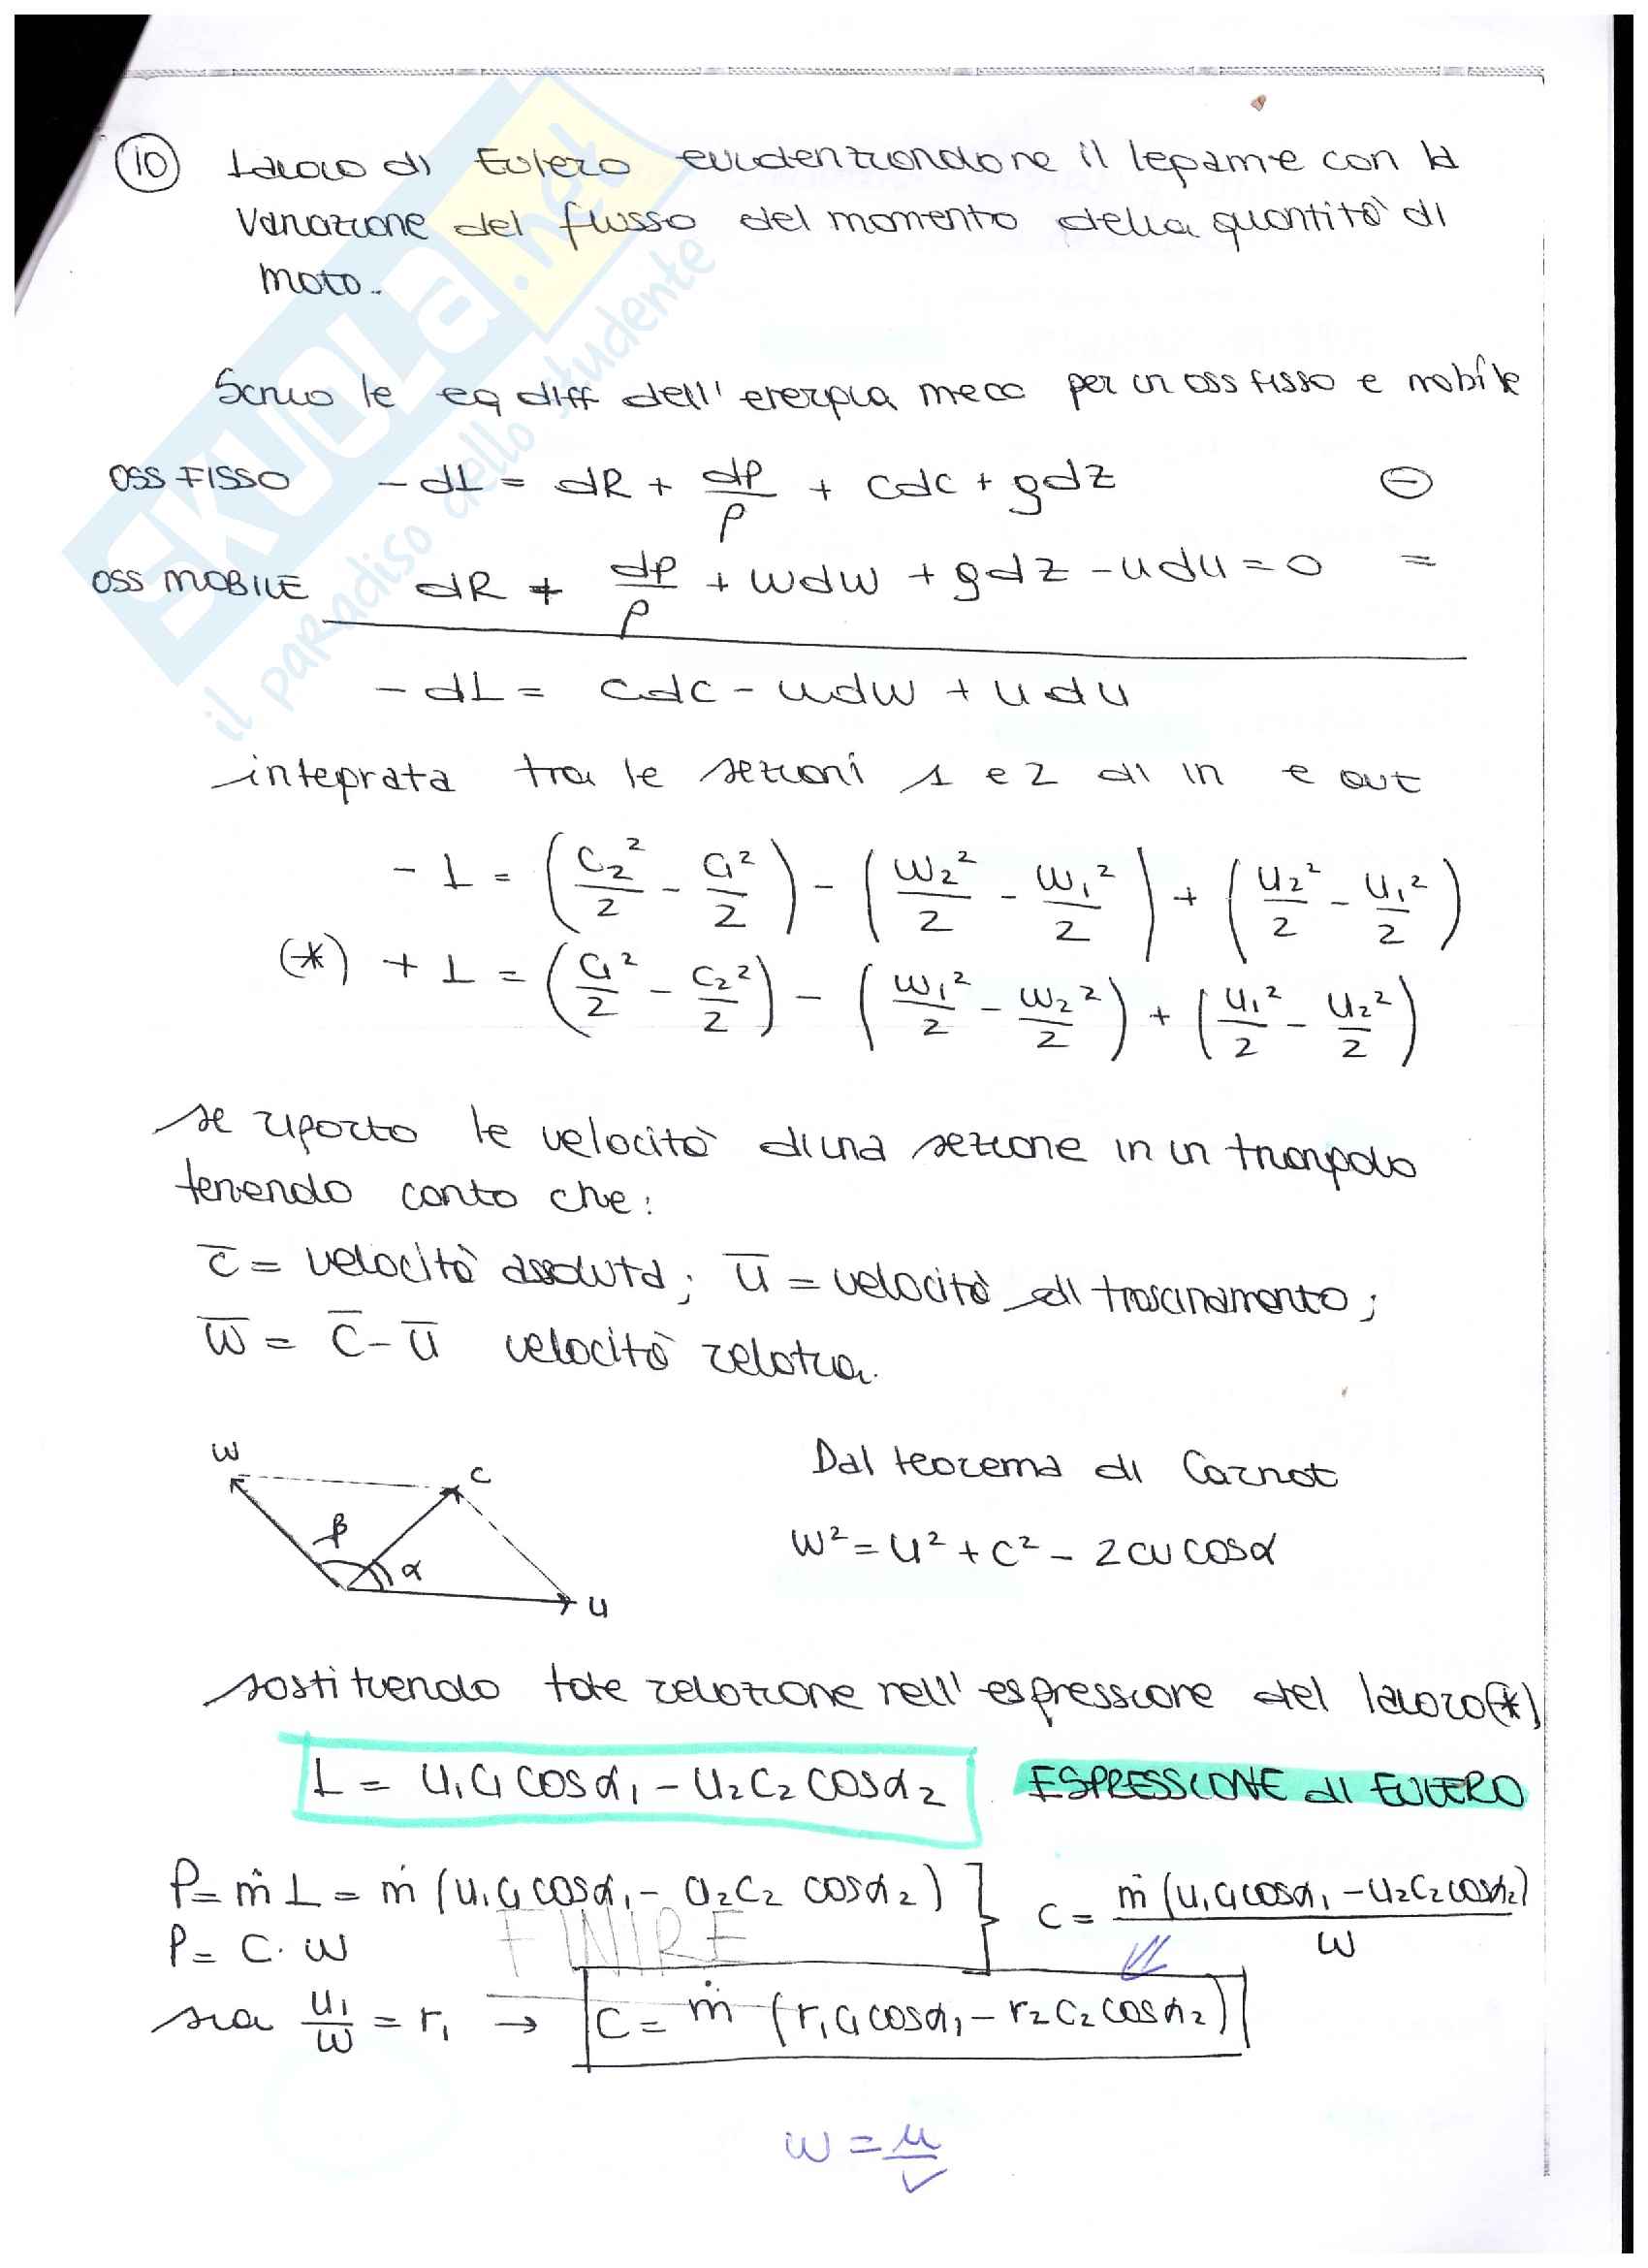 10 Lavoro di Eulero evidenziandone il legame con la
variazione del flusso del momento della quantità di
moto.
Scrivo le eq diff dell'energia mecc per un oss fisso e mobile
OSS FISSO -dL = dR + dp/ρ + cdc + gdz ⊖
OSS MOBILE dR + dp/ρ + wdw + gdz - udu = 0 =
-dL = cdc - wdw + udu
integrata tra le sezioni 1 e 2 di in e out
-L = (c₂²/2 - c₁²/2) - (w₂²/2 - w₁²/2) + (u₂²/2 - u₁²/2)
(*) +L = (c₁²/2 - c₂²/2) - (w₁²/2 - w₂²/2) + (u₁²/2 - u₂²/2)
se riporto le velocità di una sezione in un triangolo
tenendo conto che:
c̅ = velocità assoluta; u̅ = velocità di trascinamento;
w̅ = c̅ - u̅ velocità relativa.
w
c
β
α
u
Dal teorema di Carnot
w² = u² + c² - 2cu cosα
sostituendo tale relazione nell'espressione del lavoro (*)
L = u₁c₁cosα₁ - u₂c₂cosα₂ ESPRESSIONE di EULERO
P = ṁL = ṁ(u₁c₁cosα₁ - u₂c₂ cosα₂) } C = ṁ(u₁c₁cosα₁ - u₂c₂cosα₂)/ω
P = C · ω
FINIRE
sia u₁/ω = r₁ → C = ṁ (r₁c₁cosα₁ - r₂c₂cosα₂)
ω = u/r
SKUOLA.net
il paradiso dello studente